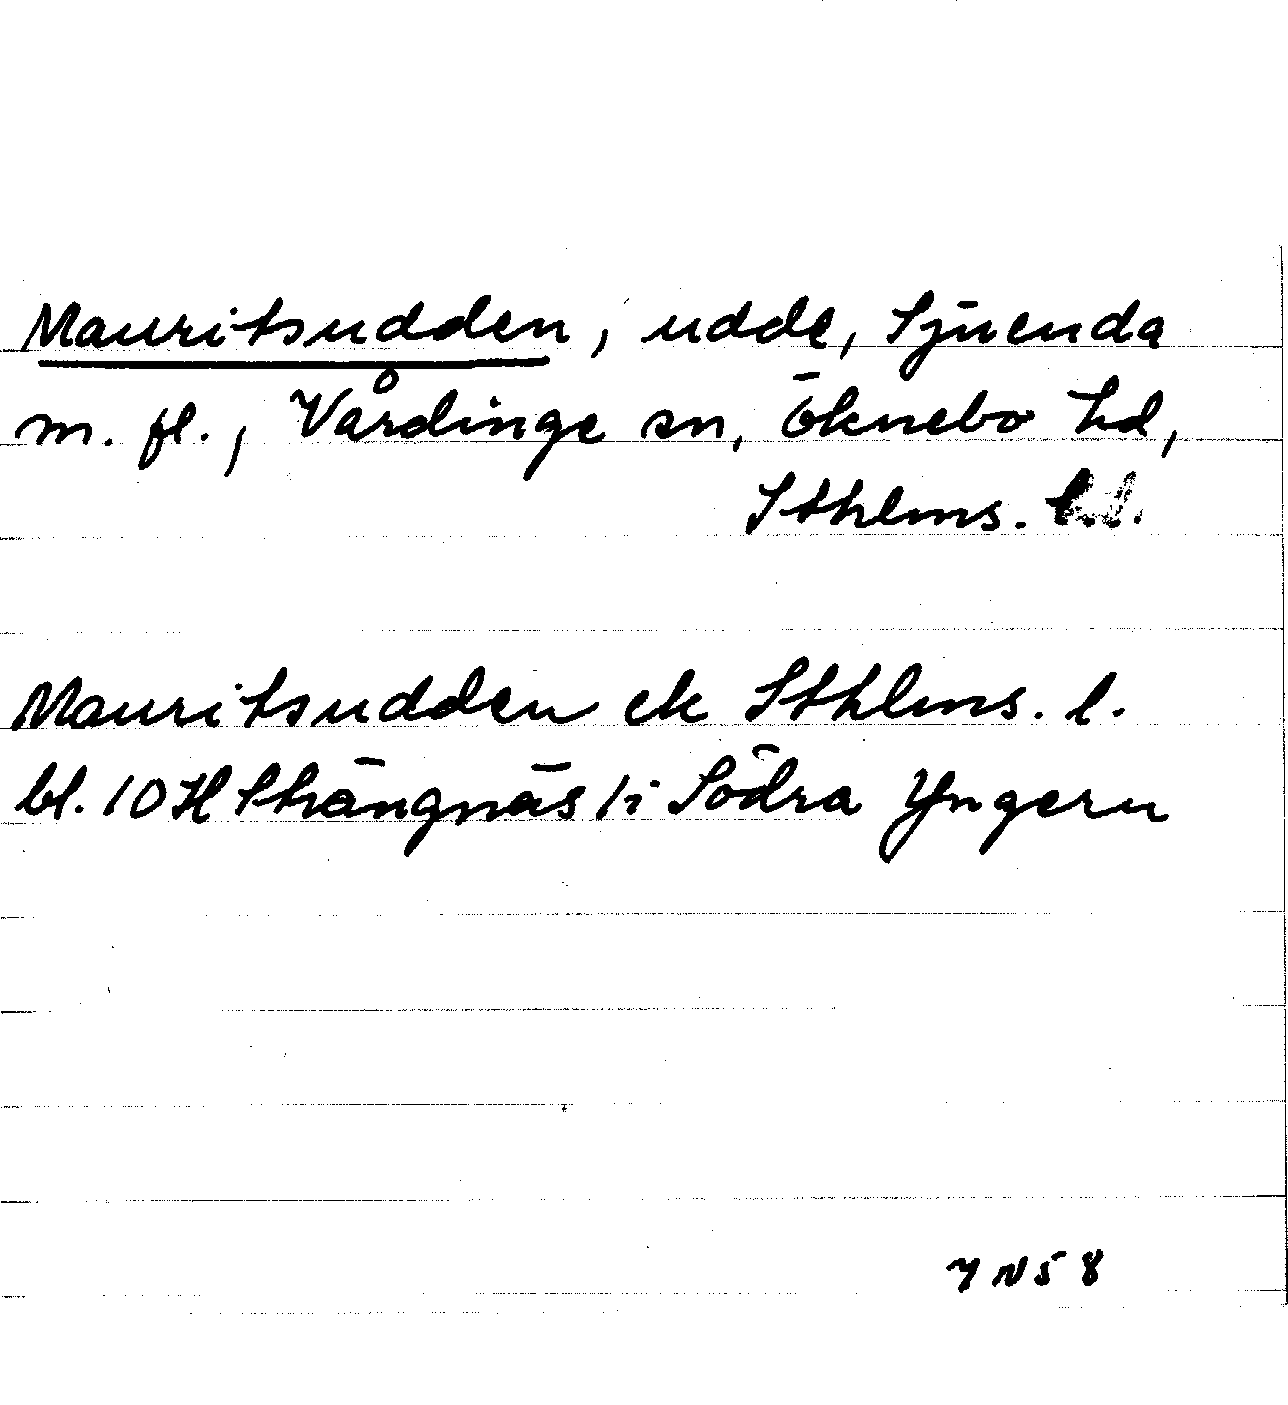 Mauritsudden, udde, Sjuenda
m. fl., Vårdinge sn, Öknebo hd,
Sthlms.
Mauritsudden ek Sthlms. l.
bl. 10 H Strängnäs 1i Södra Yngern
7 N 5 8